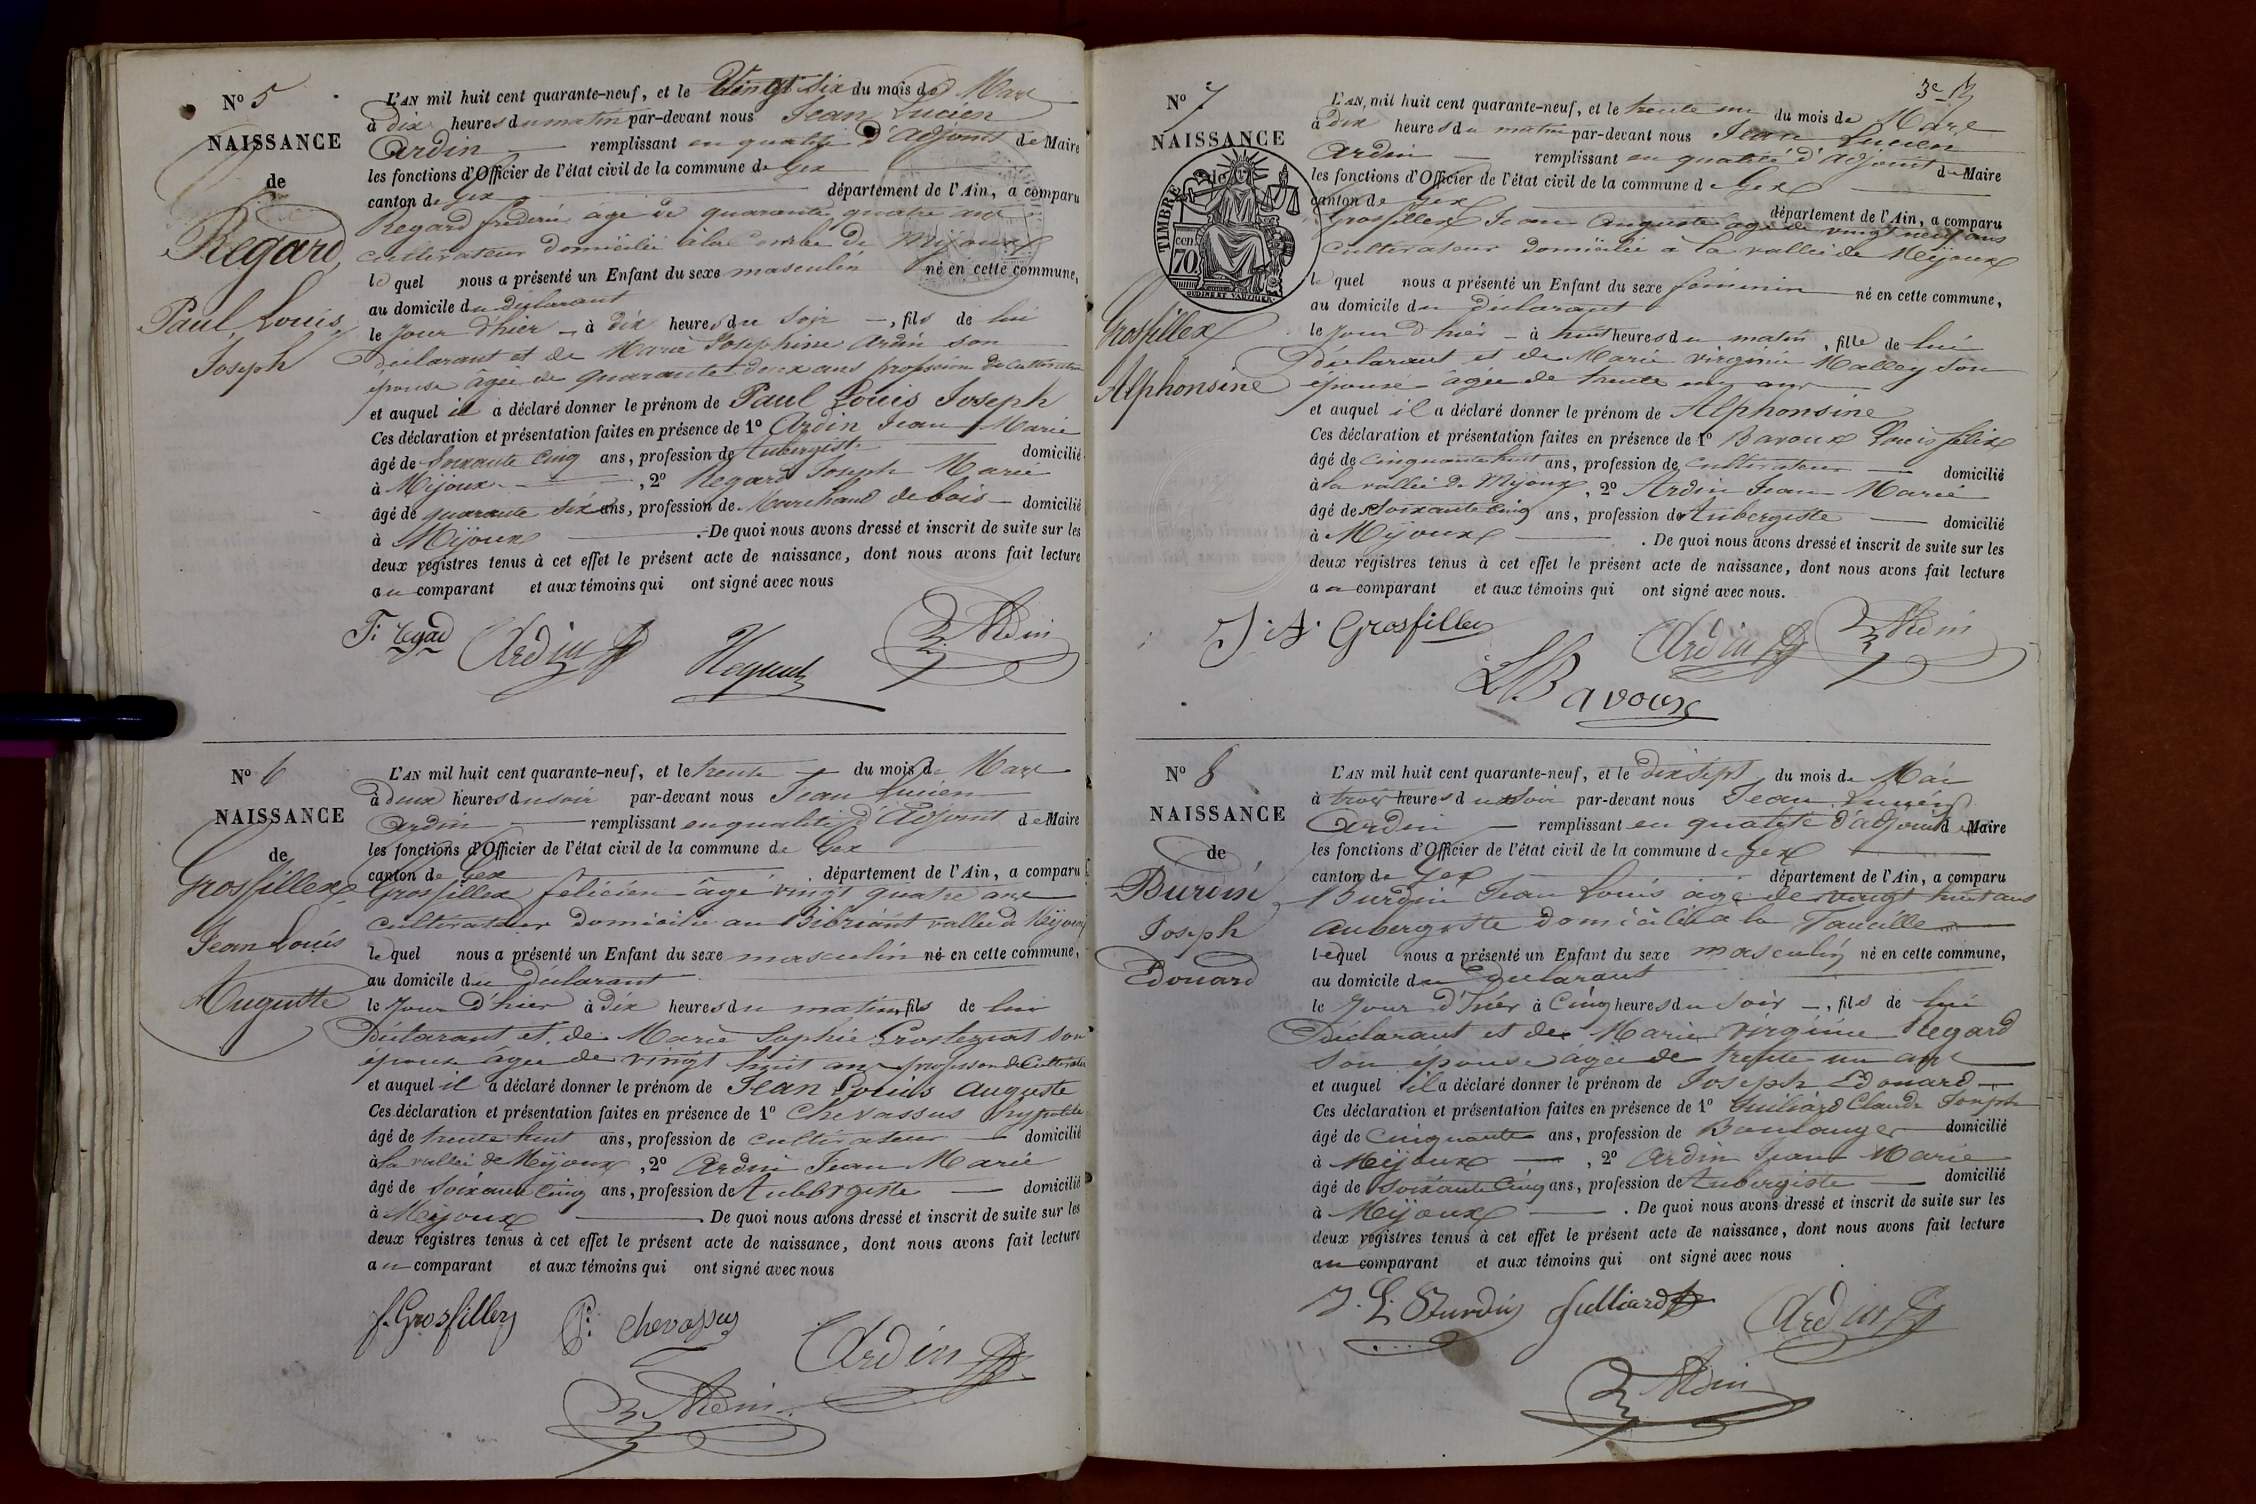 N° 5
NAISSANCE
de
Regard
Paul, Louis,
Joseph
L'AN mil huit cent quarante-neuf, et le Vingt Six du mois de Mars
à dix heures du matin par-devant nous Jean Lucien
Ardin remplissant en qualité d'Adjoint de Maire
les fonctions d'Officier de l'état civil de la commune de Gex
canton de Gex département de l'Ain, a comparu
Regard frédéric âgé de quarante quatre ans
cultivateur domicilié à la Combe de Mijoux
le quel nous a présenté un Enfant du sexe masculin né en cette commune,
au domicile du déclarant
le Jour d'hier à dix heures du Soir, fils de lui
déclarant et de Marie Josephine Ardin son
épouse âgée de quarante deux ans profession de Cultivatrice
et auquel il a déclaré donner le prénom de Paul Louis Joseph
Ces déclaration et présentation faites en présence de 1° Ardin Jean Marie
âgé de Soixante Cinq ans, profession de Aubergiste domicilié
à Mijoux, 2° Regard Joseph Marie
âgé de quarante six ans, profession de Marchand de bois domicilié
à Mijoux. De quoi nous avons dressé et inscrit de suite sur les
deux registres tenus à cet effet le présent acte de naissance, dont nous avons fait lecture
au comparant et aux témoins qui ont signé avec nous
F: regard Ardin Regard Ardin
N° 6
NAISSANCE
de
Grosfillex
Jean Louis
Auguste
L'AN mil huit cent quarante-neuf, et le trente du mois de Mars
à deux heures du soir par-devant nous Jean Lucien
Ardin remplissant en qualité d'Adjoint de Maire
les fonctions d'Officier de l'état civil de la commune de Gex
canton de Gex département de l'Ain, a comparu
Grosfillex felicien âgé vingt quatre ans
cultivateur domicilié au vallée de Mijoux
le quel nous a présenté un Enfant du sexe masculin né en cette commune,
au domicile du déclarant
le Jour d'hier à dix heures du matin, fils de lui
Déclarant et de Marie Sophie son
épouse âgée de vingt huit ans profession de Cultivatrice
et auquel il a déclaré donner le prénom de Jean Louis Auguste
Ces déclaration et présentation faites en présence de 1° Chevassus hyppolite
âgé de trente huit ans, profession de cultivateur domicilié
à la vallée de Mijoux, 2° Ardin Jean Marie
âgé de Soixante Cinq ans, profession de Aubergiste domicilié
à Mijoux. De quoi nous avons dressé et inscrit de suite sur les
deux registres tenus à cet effet le présent acte de naissance, dont nous avons fait lecture
au comparant et aux témoins qui ont signé avec nous
f. Grosfillex chevassus Ardin
Ardin
3e
N° 7
NAISSANCE
TIMBRE
cen
70
OUDINE ET VAUTHIER
Grosfillex
Alphonsine
L'AN, mil huit cent quarante-neuf, et le trente un du mois de Mars
à Dix heures du matin par-devant nous Jean Lucien
Ardin remplissant en qualité d'Adjoint de Maire
les fonctions d'Officier de l'état civil de la commune de Gex
canton de Gex département de l'Ain, a comparu
Grosfillex Jean Auguste âgé de vingt neuf ans
Cultivateur domicilié à la vallée de Mijoux
le quel nous a présenté un Enfant du sexe féminin né en cette commune,
au domicile du déclarant
le Jour d'hier à huit heures du matin, fille de lui
Déclarant et de Marie virginie Malley son
épouse âgée de trente un ans
et auquel il a déclaré donner le prénom de Alphonsine
Ces déclaration et présentation faites en présence de 1° Bavoux Louis félix
âgé de cinquante huit ans, profession de cultivateur domicilié
à la vallée de Mijoux, 2° Ardin Jean Marie
âgé de Soixante Cinq ans, profession de Aubergiste domicilié
à Mijoux. De quoi nous avons dressé et inscrit de suite sur les
deux registres tenus à cet effet le présent acte de naissance, dont nous avons fait lecture
au comparant et aux témoins qui ont signé avec nous.
J. A. Grosfillex Ardin Ardin
L Bavoux
N° 8
NAISSANCE
de
Burdin
Joseph
Edouard
L'AN mil huit cent quarante-neuf, et le dix Sept du mois de Mai
à trois heures du Soir par-devant nous Jean Lucien
Ardin remplissant en qualité d'adjoint de Maire
les fonctions d'Officier de l'état civil de la commune de Gex
canton de Gex département de l'Ain, a comparu
Burdin Jean Louis âgé de vingt huit ans
aubergiste domicilié à la Faucille
lequel nous a présenté un Enfant du sexe masculin né en cette commune,
au domicile du déclarant
le Jour d'hier à Cinq heures du Soir, fils de lui
Déclarant et de Marie Virginie Regard
son épouse âgée de trente un ans
et auquel il a déclaré donner le prénom de Joseph Edouard
Ces déclaration et présentation faites en présence de 1° Julliard Claude Joseph
âgé de cinquante ans, profession de Boulanger domicilié
à Mijoux, 2° Ardin Jean Marie
âgé de Soixante Cinq ans, profession de Aubergiste domicilié
à Mijoux. De quoi nous avons dressé et inscrit de suite sur les
deux registres tenus à cet effet le présent acte de naissance, dont nous avons fait lecture
au comparant et aux témoins qui ont signé avec nous
J. L. Burdin Julliard Ardin
Ardin